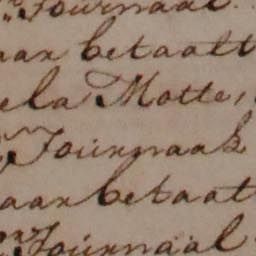 Journaal.
aar betaalt
ela Motte,
Journaal
aar betaalt
Journaal